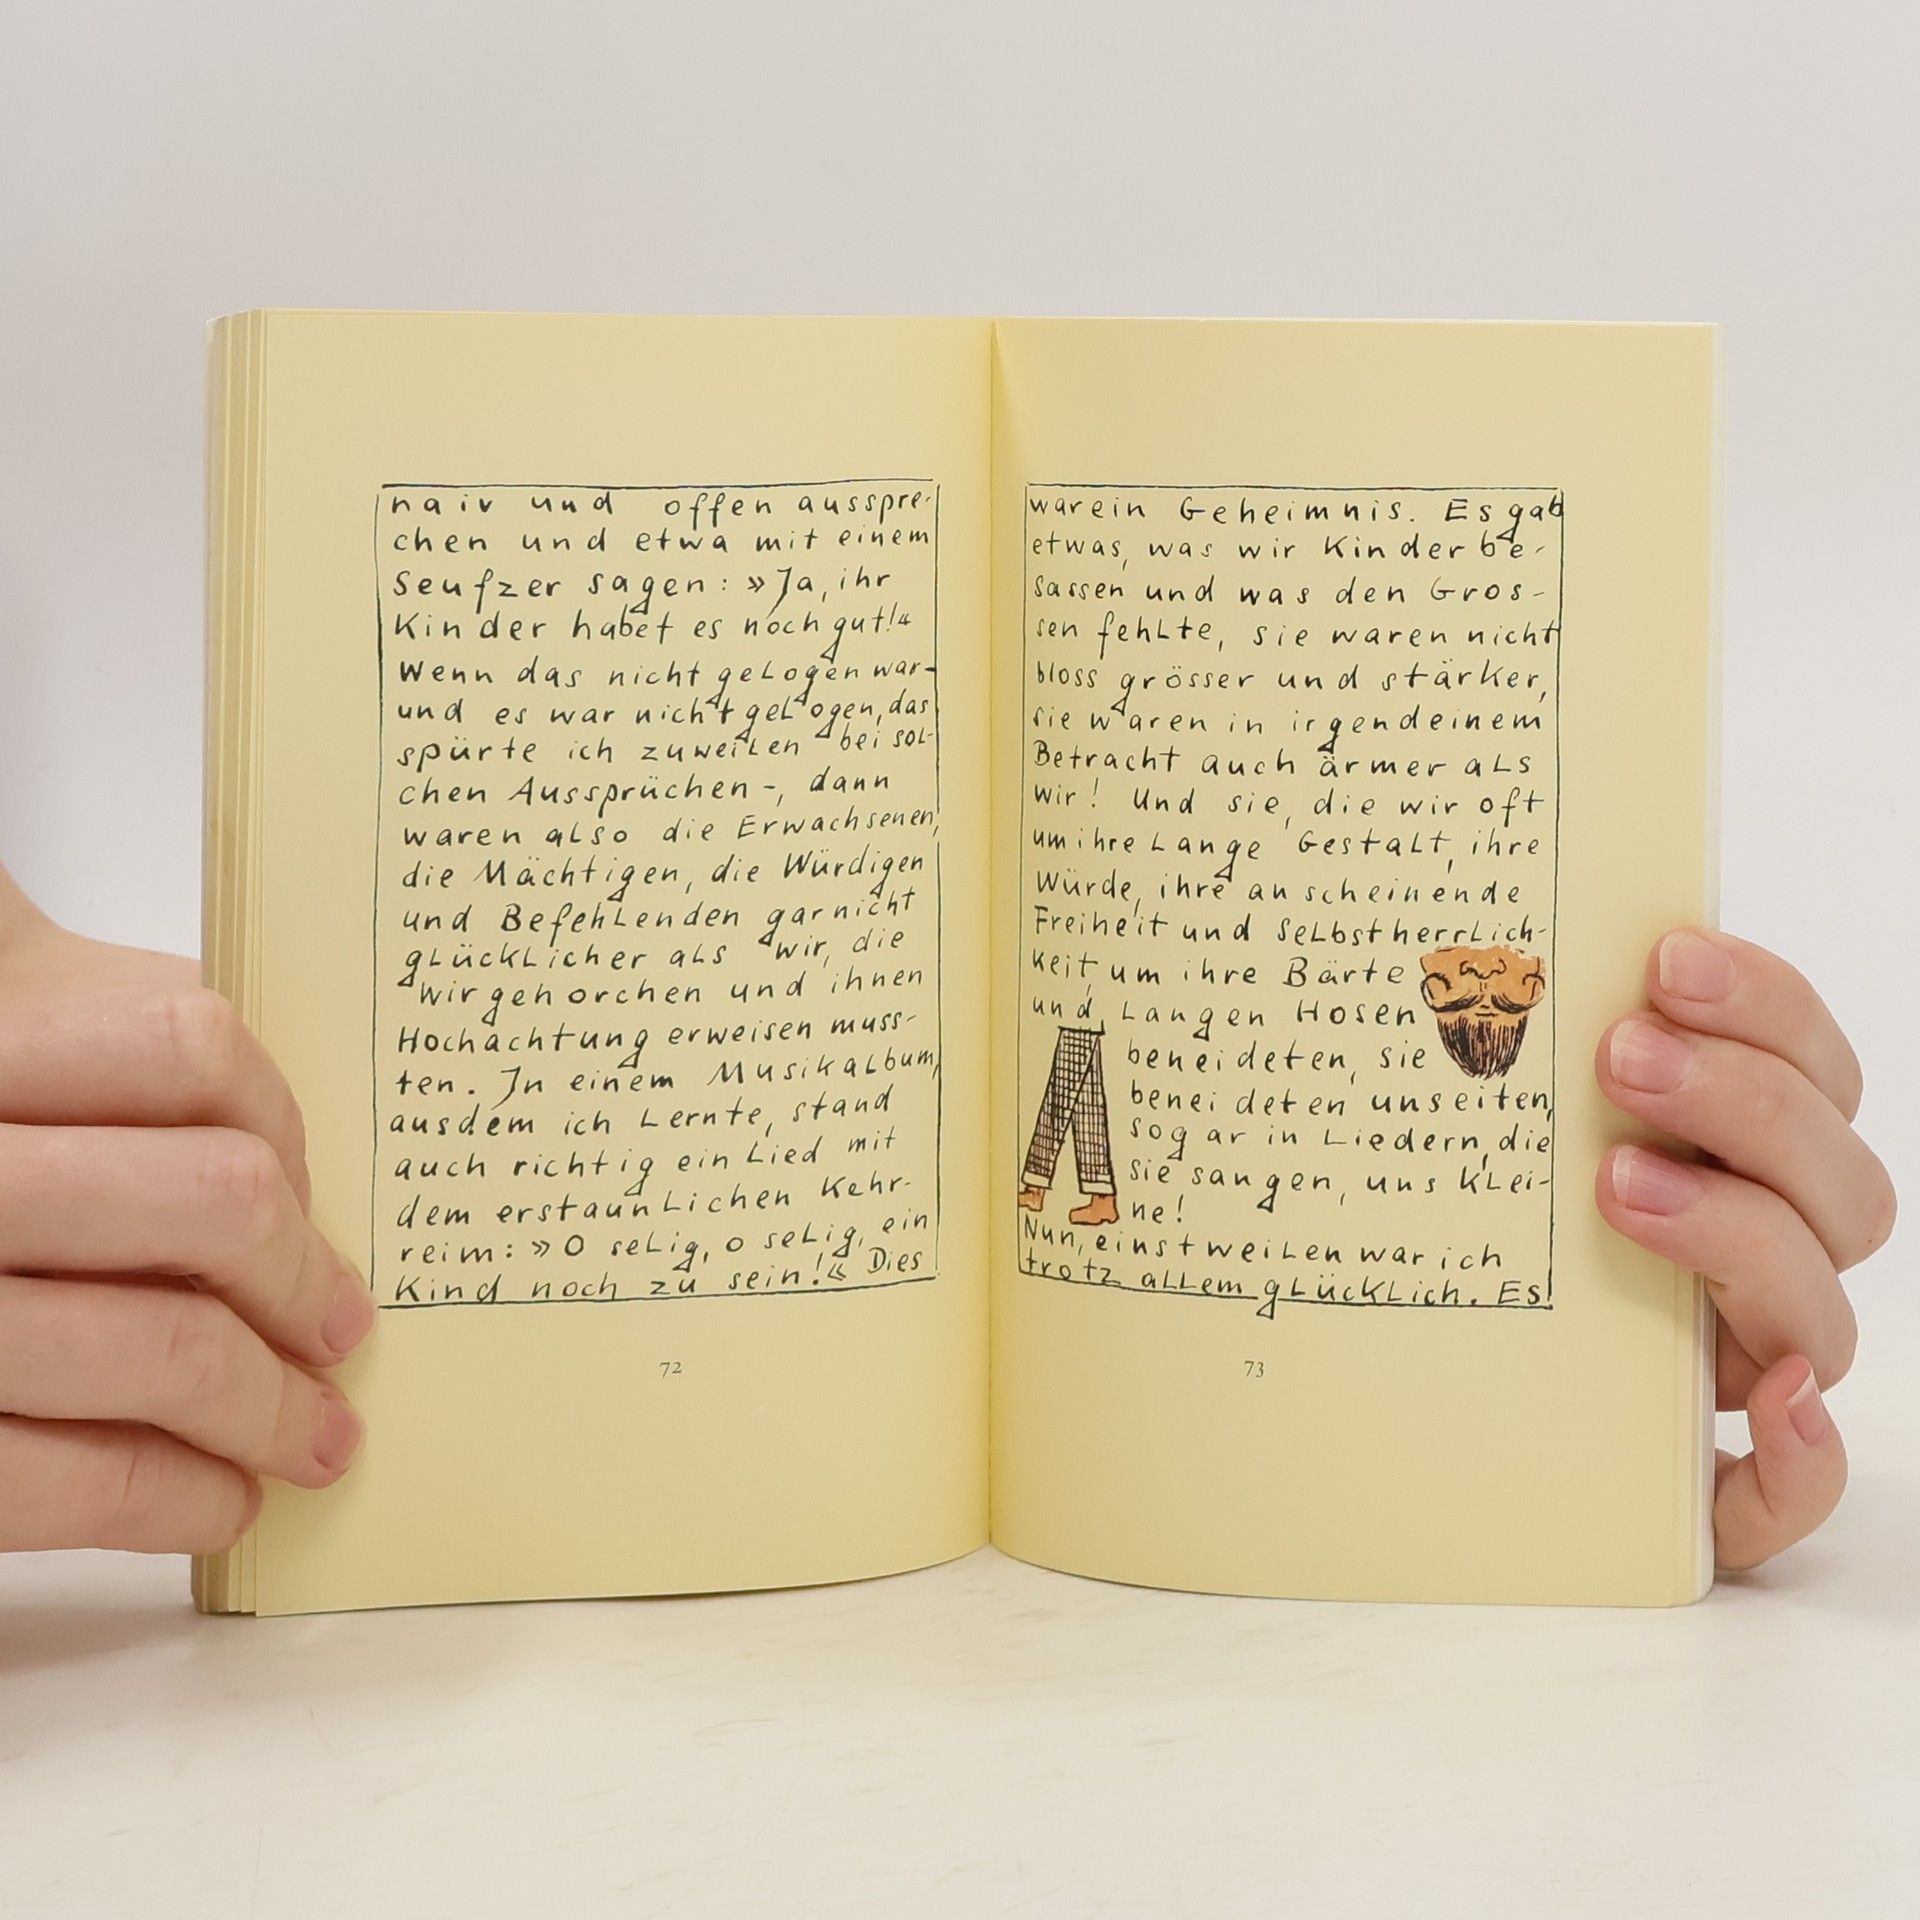 naiv und offen ausspre-
chen und etwa mit einem
Seufzer sagen: »Ja, ihr
Kinder habet es noch gut!«
Wenn das nicht gelogen war-
und es war nicht gelogen, das
spürte ich zuweilen bei sol-
chen Aussprüchen -, dann
waren also die Erwachsenen,
die Mächtigen, die Würdigen
und Befehlenden gar nicht
glücklicher als wir, die
wir gehorchen und ihnen
Hochachtung erweisen muss-
ten. In einem Musikalbum,
aus dem ich lernte, stand
auch richtig ein Lied mit
dem erstaunlichen Kehr-
reim: »O selig, o selig, ein
Kind noch zu sein!« Dies
72
war ein Geheimnis. Es gab
etwas, was wir Kinder be-
sassen und was den Gros-
sen fehlte, sie waren nicht
bloss grösser und stärker,
sie waren in irgendeinem
Betracht auch ärmer als
wir! Und sie, die wir oft
um ihre lange Gestalt, ihre
Würde, ihre anscheinende
Freiheit und Selbstherrlich-
keit, um ihre Bärte
und langen Hosen
beneideten, sie
beneideten unseiten,
sogar in Liedern, die
sie sangen, uns Klei-
ne!
Nun, einstweilen war ich
trotz allem glücklich. Es
73